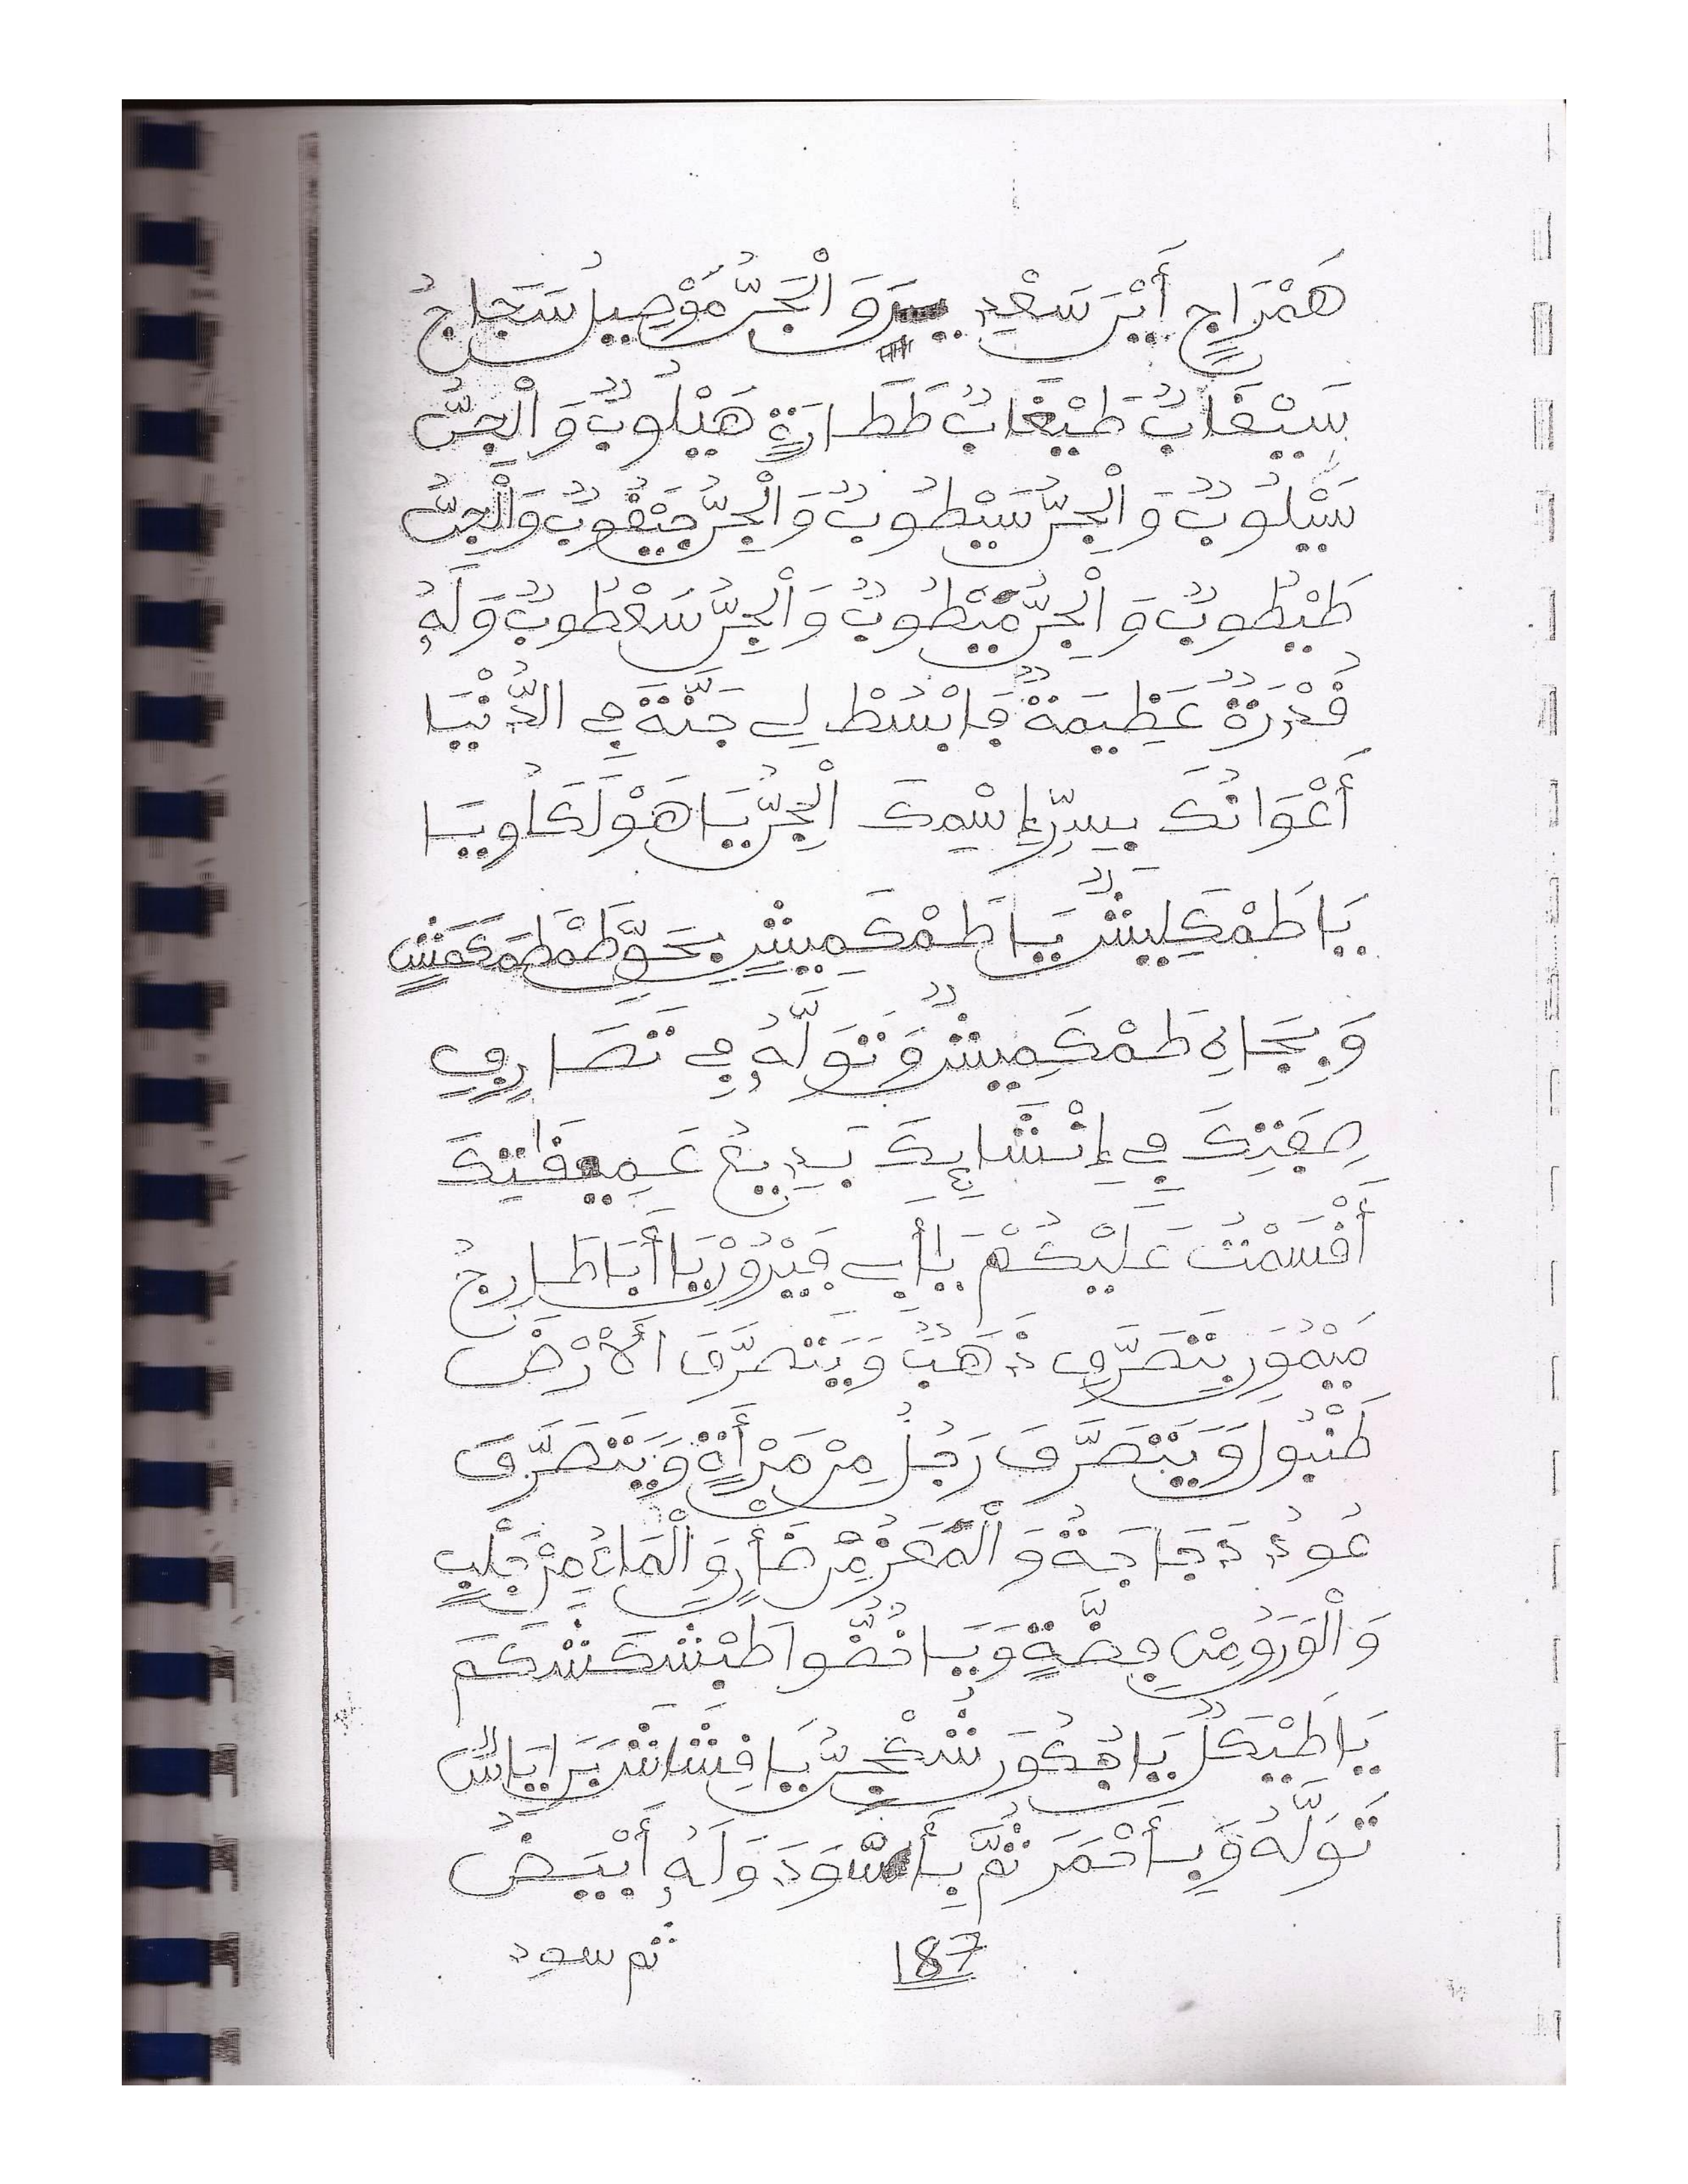 هَمْرَاجٍ أَيْرَ سَعْدِ وَالْجَنُّ مَوْصِيلُ سَجَاجُ
سَيْغَابٌ طَيْغَابٌ طَطَارَةٍ هَيْلُوبٌ وَالْجِنُّ
سَيْلُوبٌ وَالْجِنُّ سَيْطُوبٌ وَالْجِنُّ جَيْقُوبٌ وَالْجِنُّ
طَيْطُوبٌ وَالْجِنُّ مَيْطُوبٌ وَالْجِنُّ سَعْطُوبٌ وَلَهُ
قُدْرَةٌ عَظِيمَةٌ فَابْسُطْ لِي جَنَّةَ فِي الدُّنْيَا
أَعْوَانُكَ بِسِرِّ إِسْمِكَ الْجِنُّ يَا هَوْلَكَاوِيَا
يَا طَمْكِلِيشٌ يَا طَمْكَمِيشٍ بِحَقِّ طَمْطَمَكَمَشٍ
وَبِجَاهِ طَمْكَمِيشٌ وَتَوَلَّهُ فِي تَصَارِفِ
صِفَتِكَ فِي إِنْشَائِكَ بَدِيعُ عَمِيقَتِكَ
أَقْسَمْتُ عَلَيْكُمْ يَا أَبِي فَيْرُوزْ يَا أَبَا طَارِجُ
مَيْمُونِ بِتَصَرُّفِ ذَهَبٌ وَيَتَصَرَّفَ الْأَرْضَ
طَنْبُولِ وَيَتَصَرَّفَ رَجُلُ مِنْ مَرْأَةٍ وَيَتَصَرَّفَ
عُودُ دَجَاجَةٌ وَالْمَعَزُ مِنْ ضَأْنٍ وَالْمَاءُ مِنْ جَلْبٍ
وَالْوَرَقُ مِنْ فِضَّةٍ وَيَانُضُّوا طَبْشَكَشْكَمَ
يَا طَيْكَلٌ يَا فُكُورَ شَخَجِنُّ يَا فِشَاشَ بَرَايَاسٌ
تَوَلَّهُ وَبِأَحْمَرَ ثُمَّ بِأَسْوَدَ وَلَهُ أَبْيَضُ
187 ثم سود